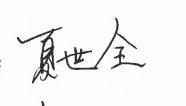 夏世全